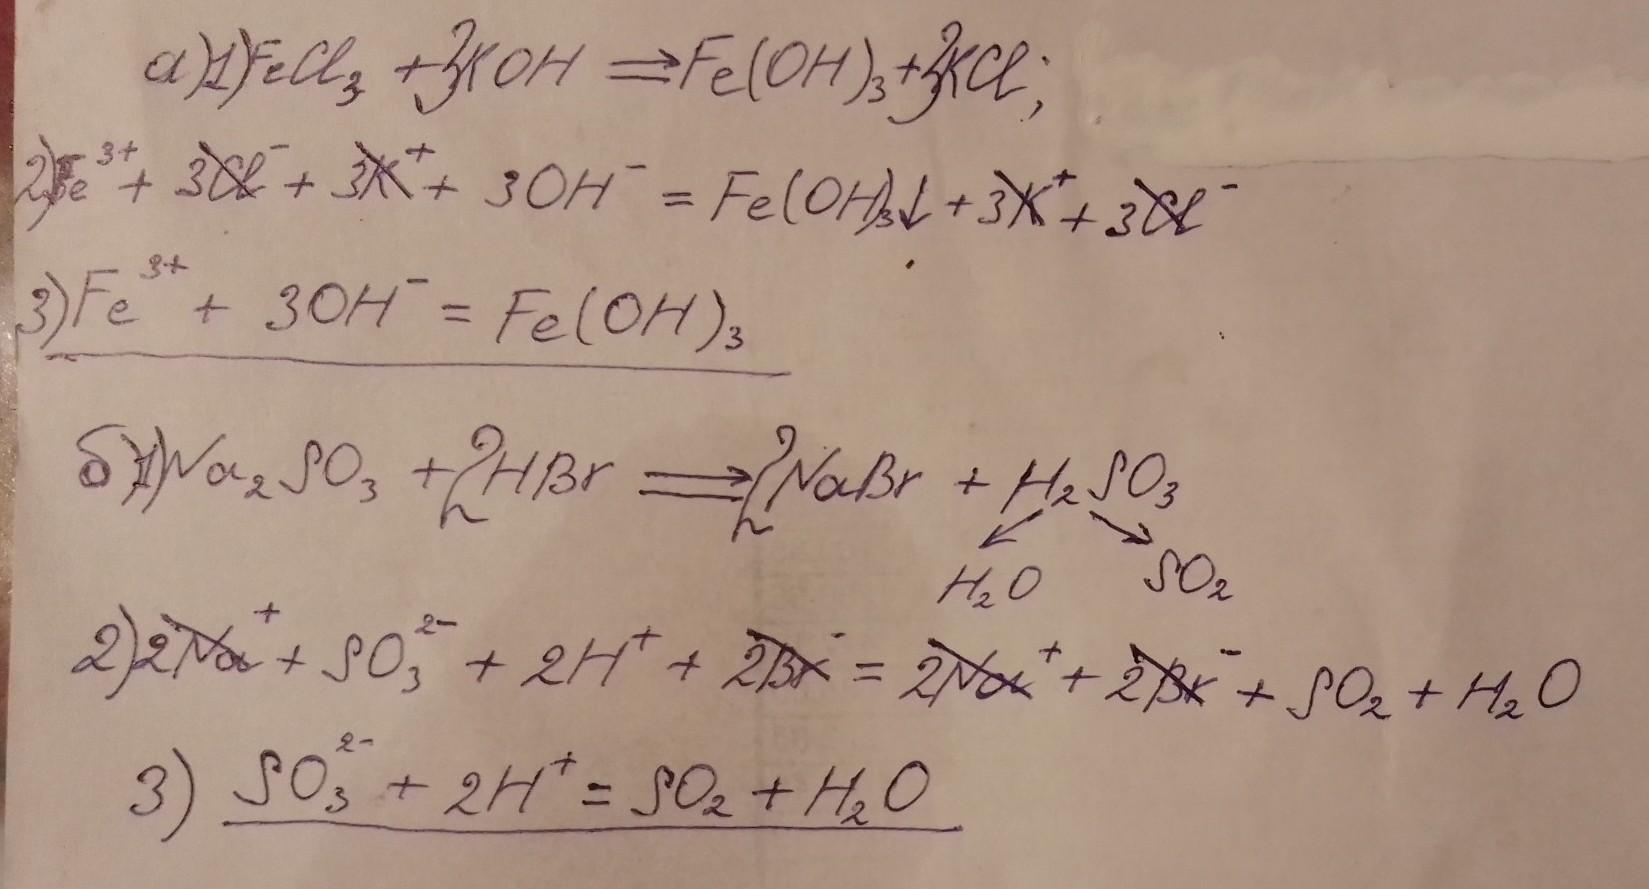 а)1)FeCl₃ + 3KOH ⇒ Fe(OH)₃ + 3KCl;
2)Fe³⁺ + 3Cl⁻ + 3K⁺ + 3OH⁻ = Fe(OH)₃↓ + 3K⁺ + 3Cl⁻
3)Fe³⁺ + 3OH⁻ = Fe(OH)₃
б)1)Na₂SO₃ + 2HBr ⇒ 2NaBr + H₂SO₃
H₂O SO₂
2)2Na⁺ + SO₃²⁻ + 2H⁺ + 2Br⁻ = 2Na⁺ + 2Br⁻ + SO₂ + H₂O
3) SO₃²⁻ + 2H⁺ = SO₂ + H₂O